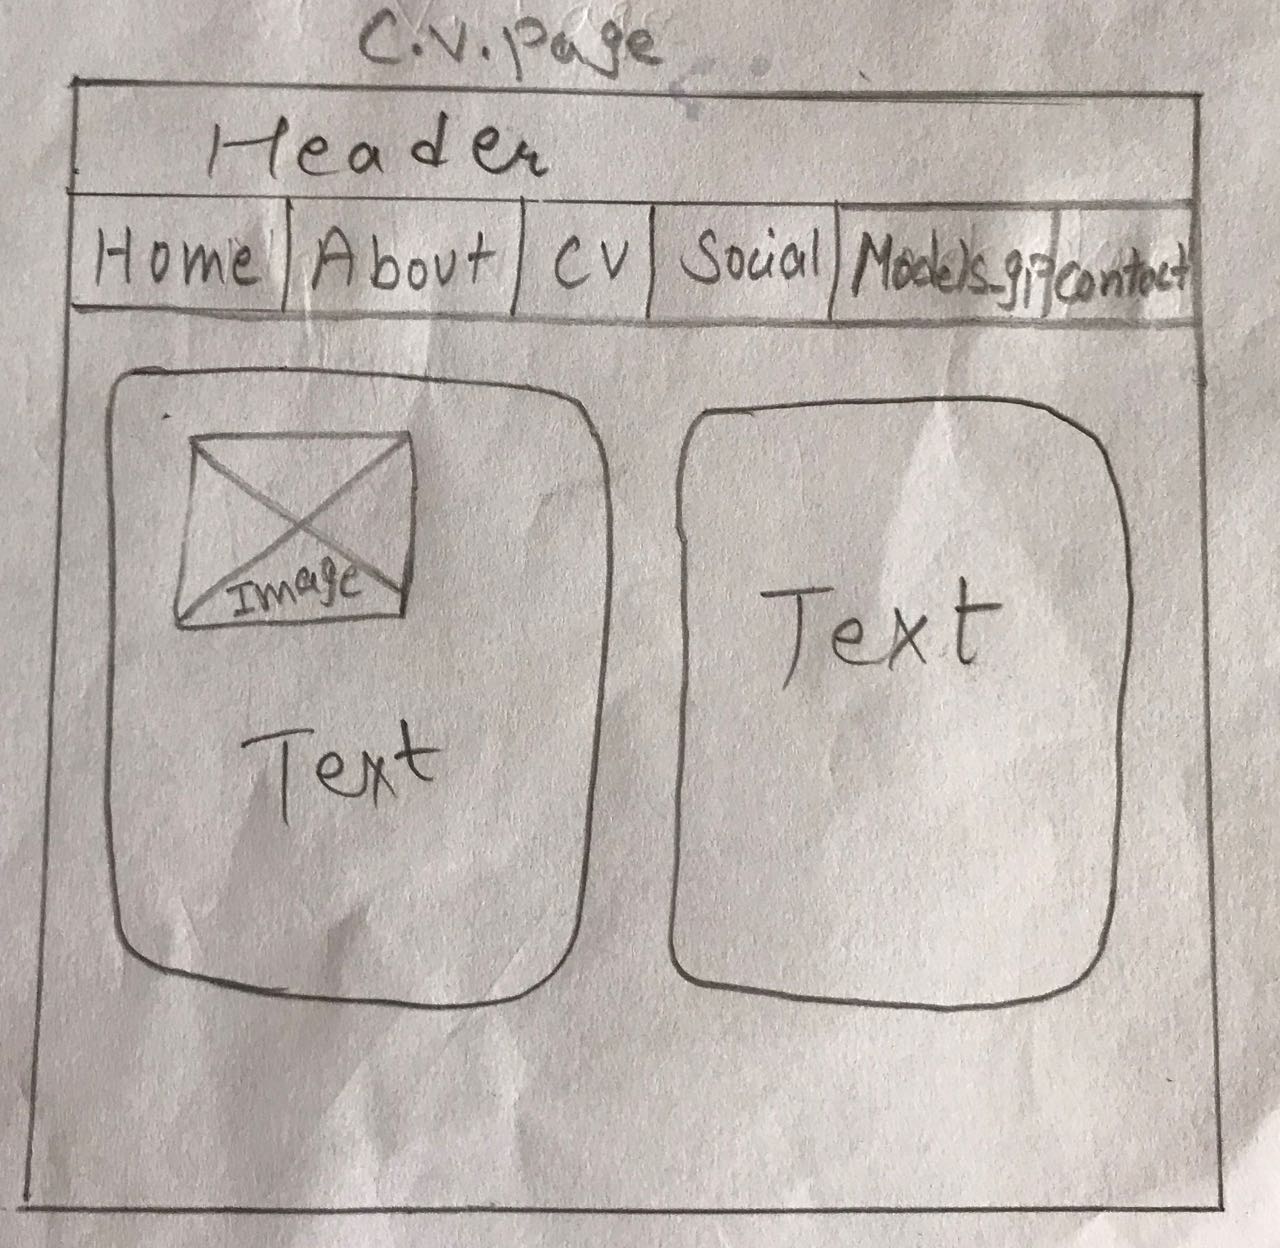 C.V. page
Header
Home About CV Social Models_gif contact
Image
Text
Text